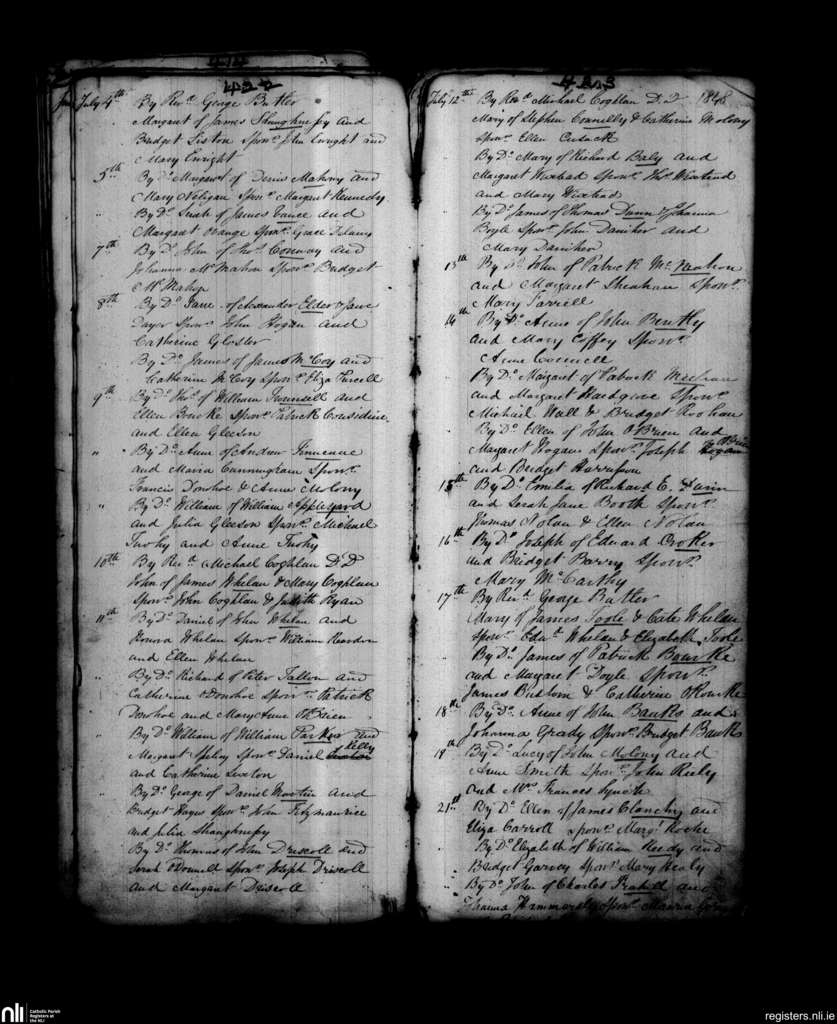 July 4th By Revd. George Butler
Margaret of James Shaughnessy and
Bridget Liston Sponr. John Enright and
Mary Enright
5th By Do. Margaret of Denis Mahony and
Mary Neligan Sponr. Margaret Kennedy
" By Do. Sarah of James Vance and
Margaret Orange Sponr. Grace
7th By Do. John of Thos. Conway and
Johanna McMahon Sponr. Bridget
McMahon
8th By Do. Jane of Alexander Elder & Jane
Sponr. John Hogan and
Catherine Gloster
By Do. James of James McCoy and
Catherine McCoy Sponr. Eliza Purcell
9th By Do. Thos. of William and
Ellen Bourke Sponr. Patrick Considine
and Ellen Gleeson
" By Do. Anne of Andrew
and Maria Cunningham Sponr.
Francis Donohoe & Anne Molony
" By Do. William of William Appleyard
and Julia Gleeson Sponr. Michael
Tuohy and Anne Tuohy
10th By Revd. Michael Coghlan D.D.
John of James Whelan & Mary Coghlan
Sponr. John Coghlan & Judith Ryan
11th By Do. Daniel of John Whelan and
Honora Whelan Sponr. William Reardon
and Ellen Whelan
" By Do. Richard of Peter Tallon and
Catherine Donohoe Sponr. Patrick
Donohoe and Mary Anne O'Brien
" By Do. William of William Parker and
Margaret Sponr. Daniel Kelly
and Catherine Sexton
By Do. George of Daniel Martin and
Bridget Hayes Sponr. John Fitzmaurice
and Julia Shaughnessy
By Do. Thomas of John Driscoll and
Sarah O'Donnell Sponr. Joseph Driscoll
and Margaret Driscoll
423
July 12th By Revd. Michael Coghlan D.D. 1848
Mary of Stephen Connelly & Catherine Molony
Sponr. Ellen Cusack
By Do. Mary of Richard Baly and
Margaret Sponr. Thos.
and Mary
By Do. James of Thomas Dunn & Johanna
Boyle Sponr. John Daniher and
Mary Daniher
13th By Do. John of Patrick McMahon
and Margaret Sheahan Sponr.
Mary Farrell
14th By Do. Anne of John Bently
and Mary Coffey Sponr.
Anne
By Do. Margaret of Patrick Meehan
and Margaret Hardgrave Sponr.
Michael Wall & Bridget Roohan
By Do. Ellen of John O'Brien and
Margaret Hogan Sponr. Joseph O'Brien
and Bridget Harrison
15th By Do. Emilia of Richard E.
and Sarah Jane Booth Sponr.
Thomas Nolan & Ellen Nolan
16th By Do. Joseph of Edward Croker
and Bridget Barry Sponr.
Mary McCarthy
17th By Revd. George Butler
Mary of James Toole & Cate Whelan
Sponr. Edwd. Whelan & Elizabeth Toole
By Do. James of Patrick Bourke
and Margaret Doyle Sponr.
James & Catherine O'Rourke
18th By Do. Anne of John Banks and
Johanna Grady Sponr. Bridget Banks
19th By Do. Lucy of John Molony and
Anne Smith Sponr. John Reily
and Mrs. Frances Lynch
21st By Do. Ellen of James Clanchy and
Eliza Carroll Sponr. Margt. Roche
By Do. Elizabeth of William Reidy and
Bridget Garvey Sponr. Mary Healy
By Do. John of Charles and
Johanna Sponr. Maria
nli Catholic Parish
Registers at
the NLI
registers.nli.ie